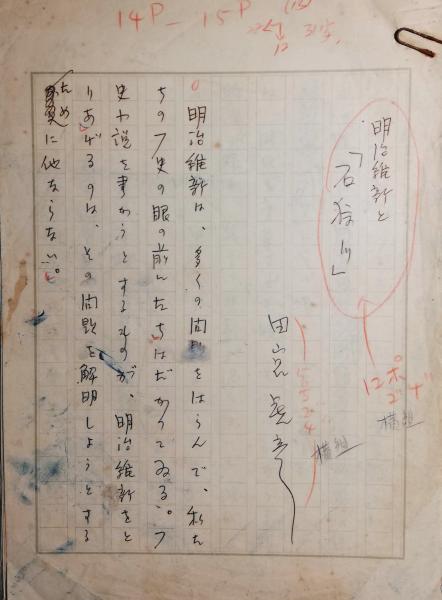 14P-15P
12ポ
明治維新と
「石狩川」
田宮虎彦
明治維新は、多くの問題をはらんで、私た
ちの歴史の眼の前にたちはだかつてゐる。歴
史小説を書かうとするものが、明治維新をと
りあげるのは、その問題を解明しようとする
ために他ならない。